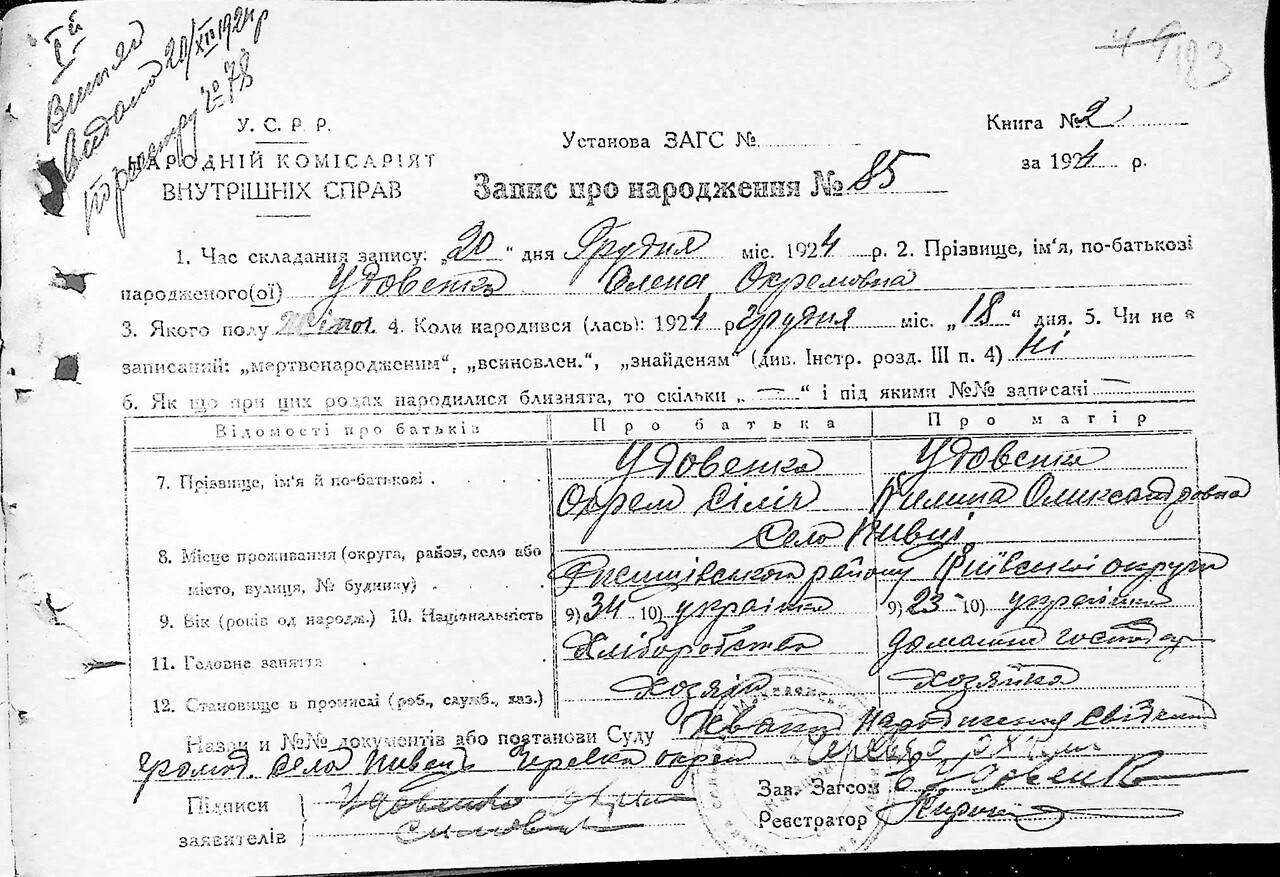 І й
Витяг
видано 20/XII 1924 р
по реєстру № 78
49 183
У. С. Р. Р.
НАРОДНІЙ КОМІСАРІЯТ
ВНУТРІШНІХ СПРАВ
Установа ЗАГС №
Книга № 2
за 1924 р.
Запис про народження № 85
1. Час складання запису: „20“ дня Грудня міс. 1924 р. 2. Прізвище, ім‘я, по-батькові
народженого(ої) Удовенко Олена Охремовна
3. Якого полу жіноч. 4. Коли народився (лась): 1924 р Грудня міс. „18“ дня. 5. Чи не є
записаний: „мертвонародженим“, „всиновлен.“, „знайденям“ (див. Інстр. розд. III п. 4) Ні
6. Як що при цих родах народилися близнята, то скільки „—“ і під якими №№ записані —
Відомості про батьків Про батька Про матір
7. Прізвище, ім‘я й по-батькові Удовенко Удовенко
Охрем Сіліч Килина Олександровна
Село Пивці
8. Місце проживання (округа, район, село або
місто, вулиця, № будинку) Ржищівського району Київської округи
9. Вік (років од народж.) 10. Національність 9) 34 10) українка 9) 23 10) українка
11. Головне заняття Хліборобство домашнє господар
12. Становище в промислі (роб., служб., хаз.) хозяїн хозяйка
Назви и №№ документів або постанови Суду
громад. села Пивець Черевка
Підписи
заявителів Удовенко
Зав. Загсом
Реєстратор